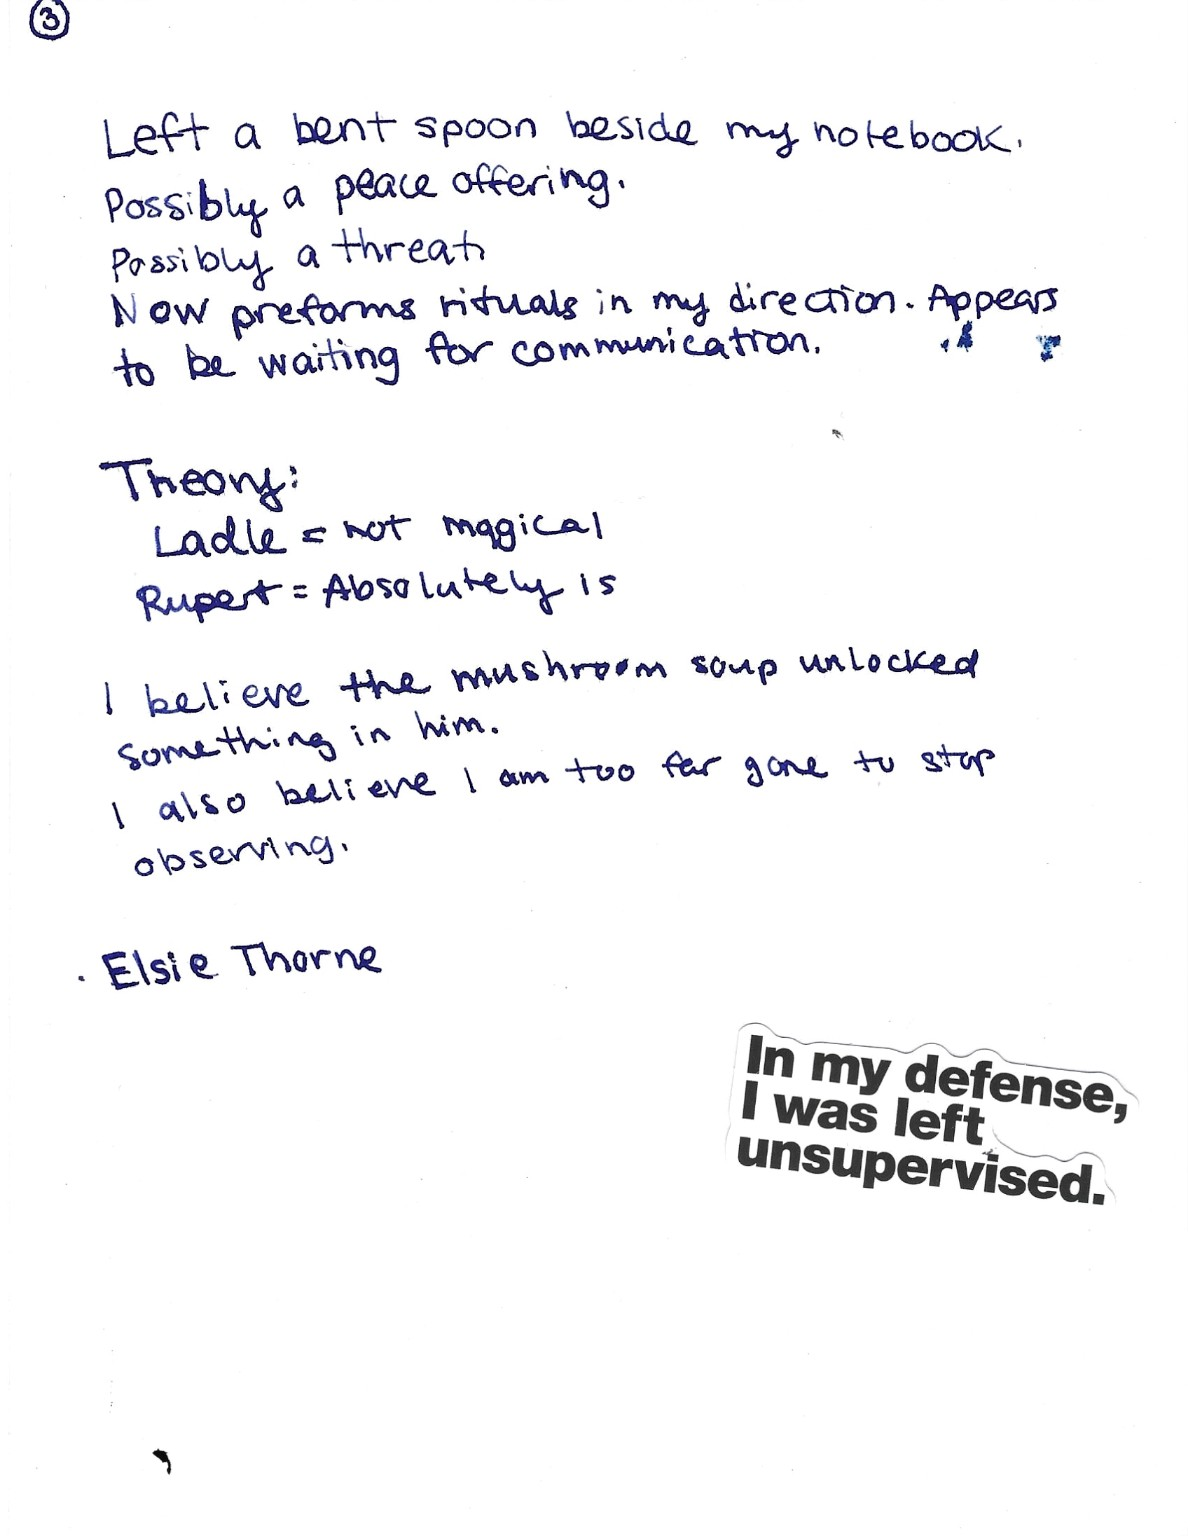 3
Left a bent spoon beside my notebook.
Possibly a peace offering.
Possibly a threat
Now preforms rituals in my direction. Appears
to be waiting for communication.
Theory:
Ladle = not magical
Rupert = Absolutely is
I believe the mushroom soup unlocked
something in him.
I also believe I am too far gone to stop
observing.
Elsie Thorne
In my defense,
I was left
unsupervised.